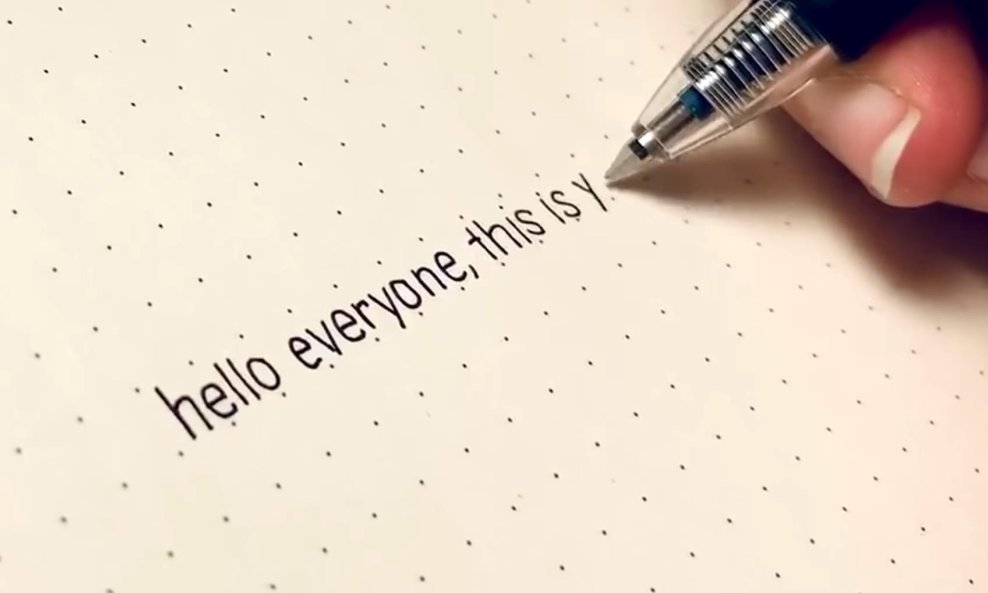 hello everyone, this is y